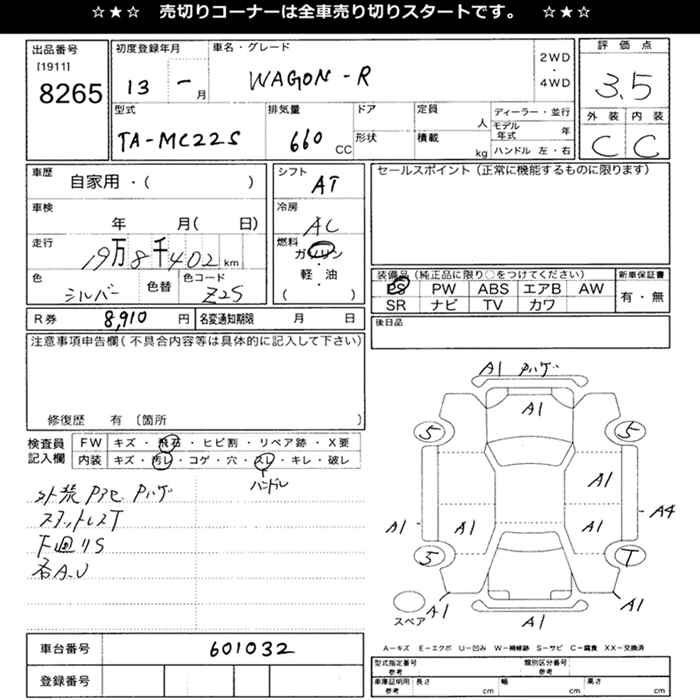 ☆★☆ 売切りコーナーは全車売り切りスタートです。 ☆★☆
出品番号
[1911]
8265
初度登録年月
13 - 月
車名・グレード
WAGON-R
2WD
・
4WD
評価点
3.5
型式
TA-MC22S
排気量
660 CC
ドア
形状
定員
人
積載
kg
ディーラー・並行
モデル年式 年
ハンドル 左・右
外装 内装
C C
車歴
自家用・( )
シフト
AT
セールスポイント(正常に機能するものに限ります)
車検
年 月( 日)
冷房
AC
走行
19万8千402km
燃料
ガソリン
・
軽・油
( )
色
シルバー
色替
色コード
Z2S
装備品(純正品に限り○をつけてください)
新車保証書
PS PW ABS エアB AW
有・無
SR ナビ TV カワ
R券 8,910 円
名変通知期限 月 日
後日品
注意事項申告欄(不具合内容等は具体的に記入して下さい)
修復歴 有 〔箇所 〕
検査員
記入欄
FW キズ・飛石・ヒビ割・リペア跡・X要
内装 キズ・汚レ・コゲ・穴・スレ・キレ・破レ
ハンドル
下回りS
A1
A1
5 5
A1
A1 A1 A1 A4
5 T
スペア
A1 A1 A1
A-キズ E-エクボ U-凹み W-補修跡 S-サビ C-腐食 XX-交換済
車台番号 601032
登録番号
型式指定番号
参考
類別区分番号
参考
車庫証明用
参考
長さ cm 幅 cm 高さ cm